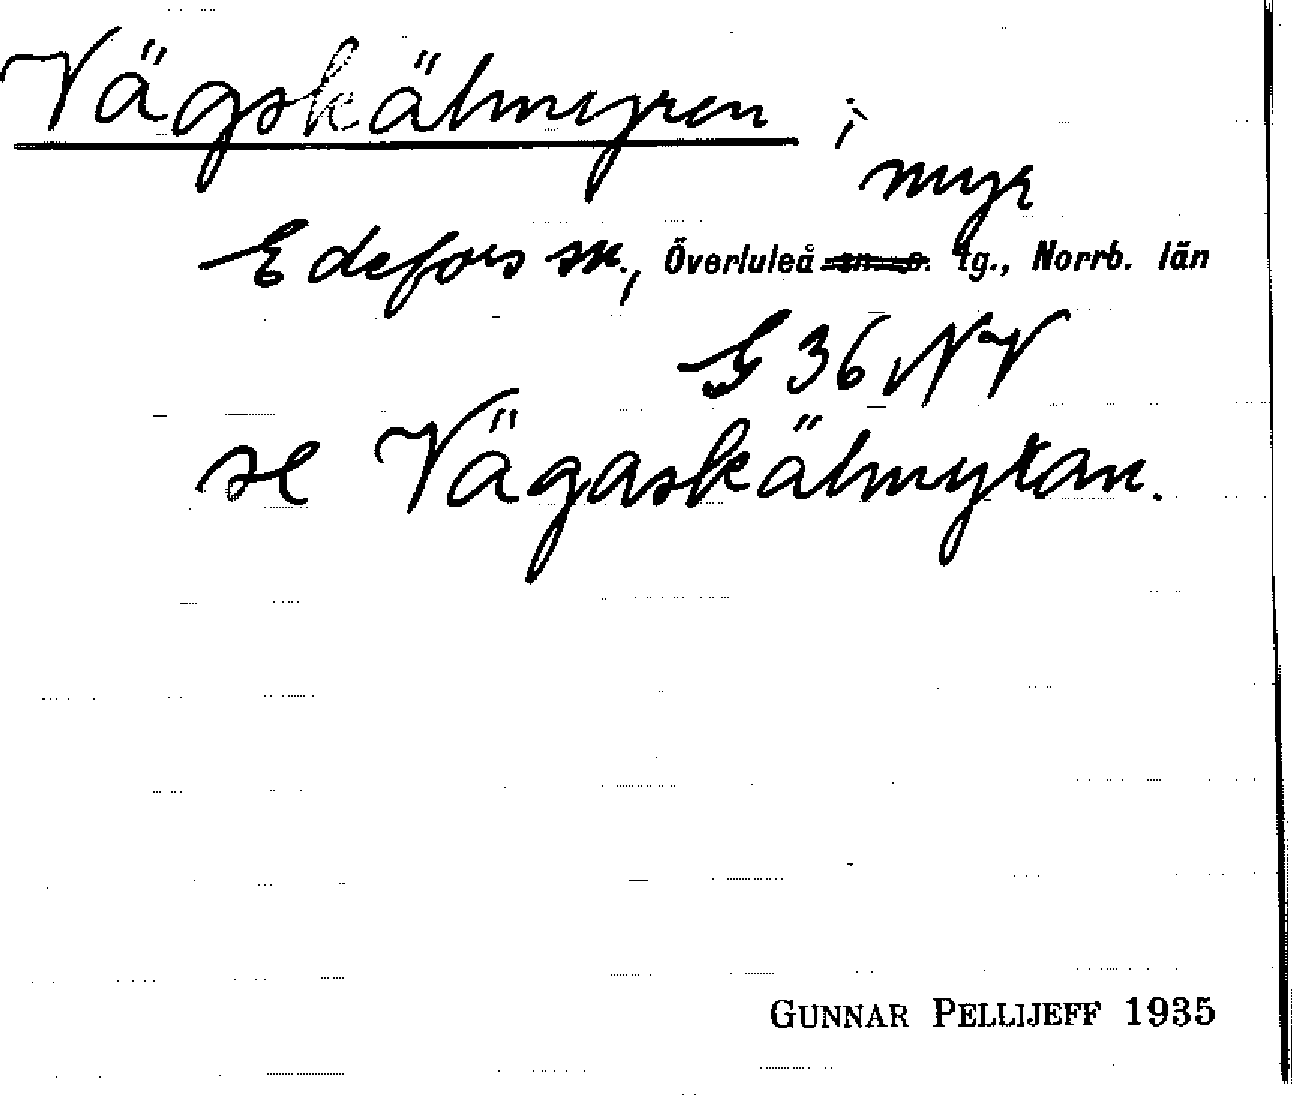 Vägskälmyren ;
myr
Edefors sn., Överluleå tg., Norrb. län
G 36 NV
se Vägaskälmyran.
GUNNAR PELLIJEFF 1935